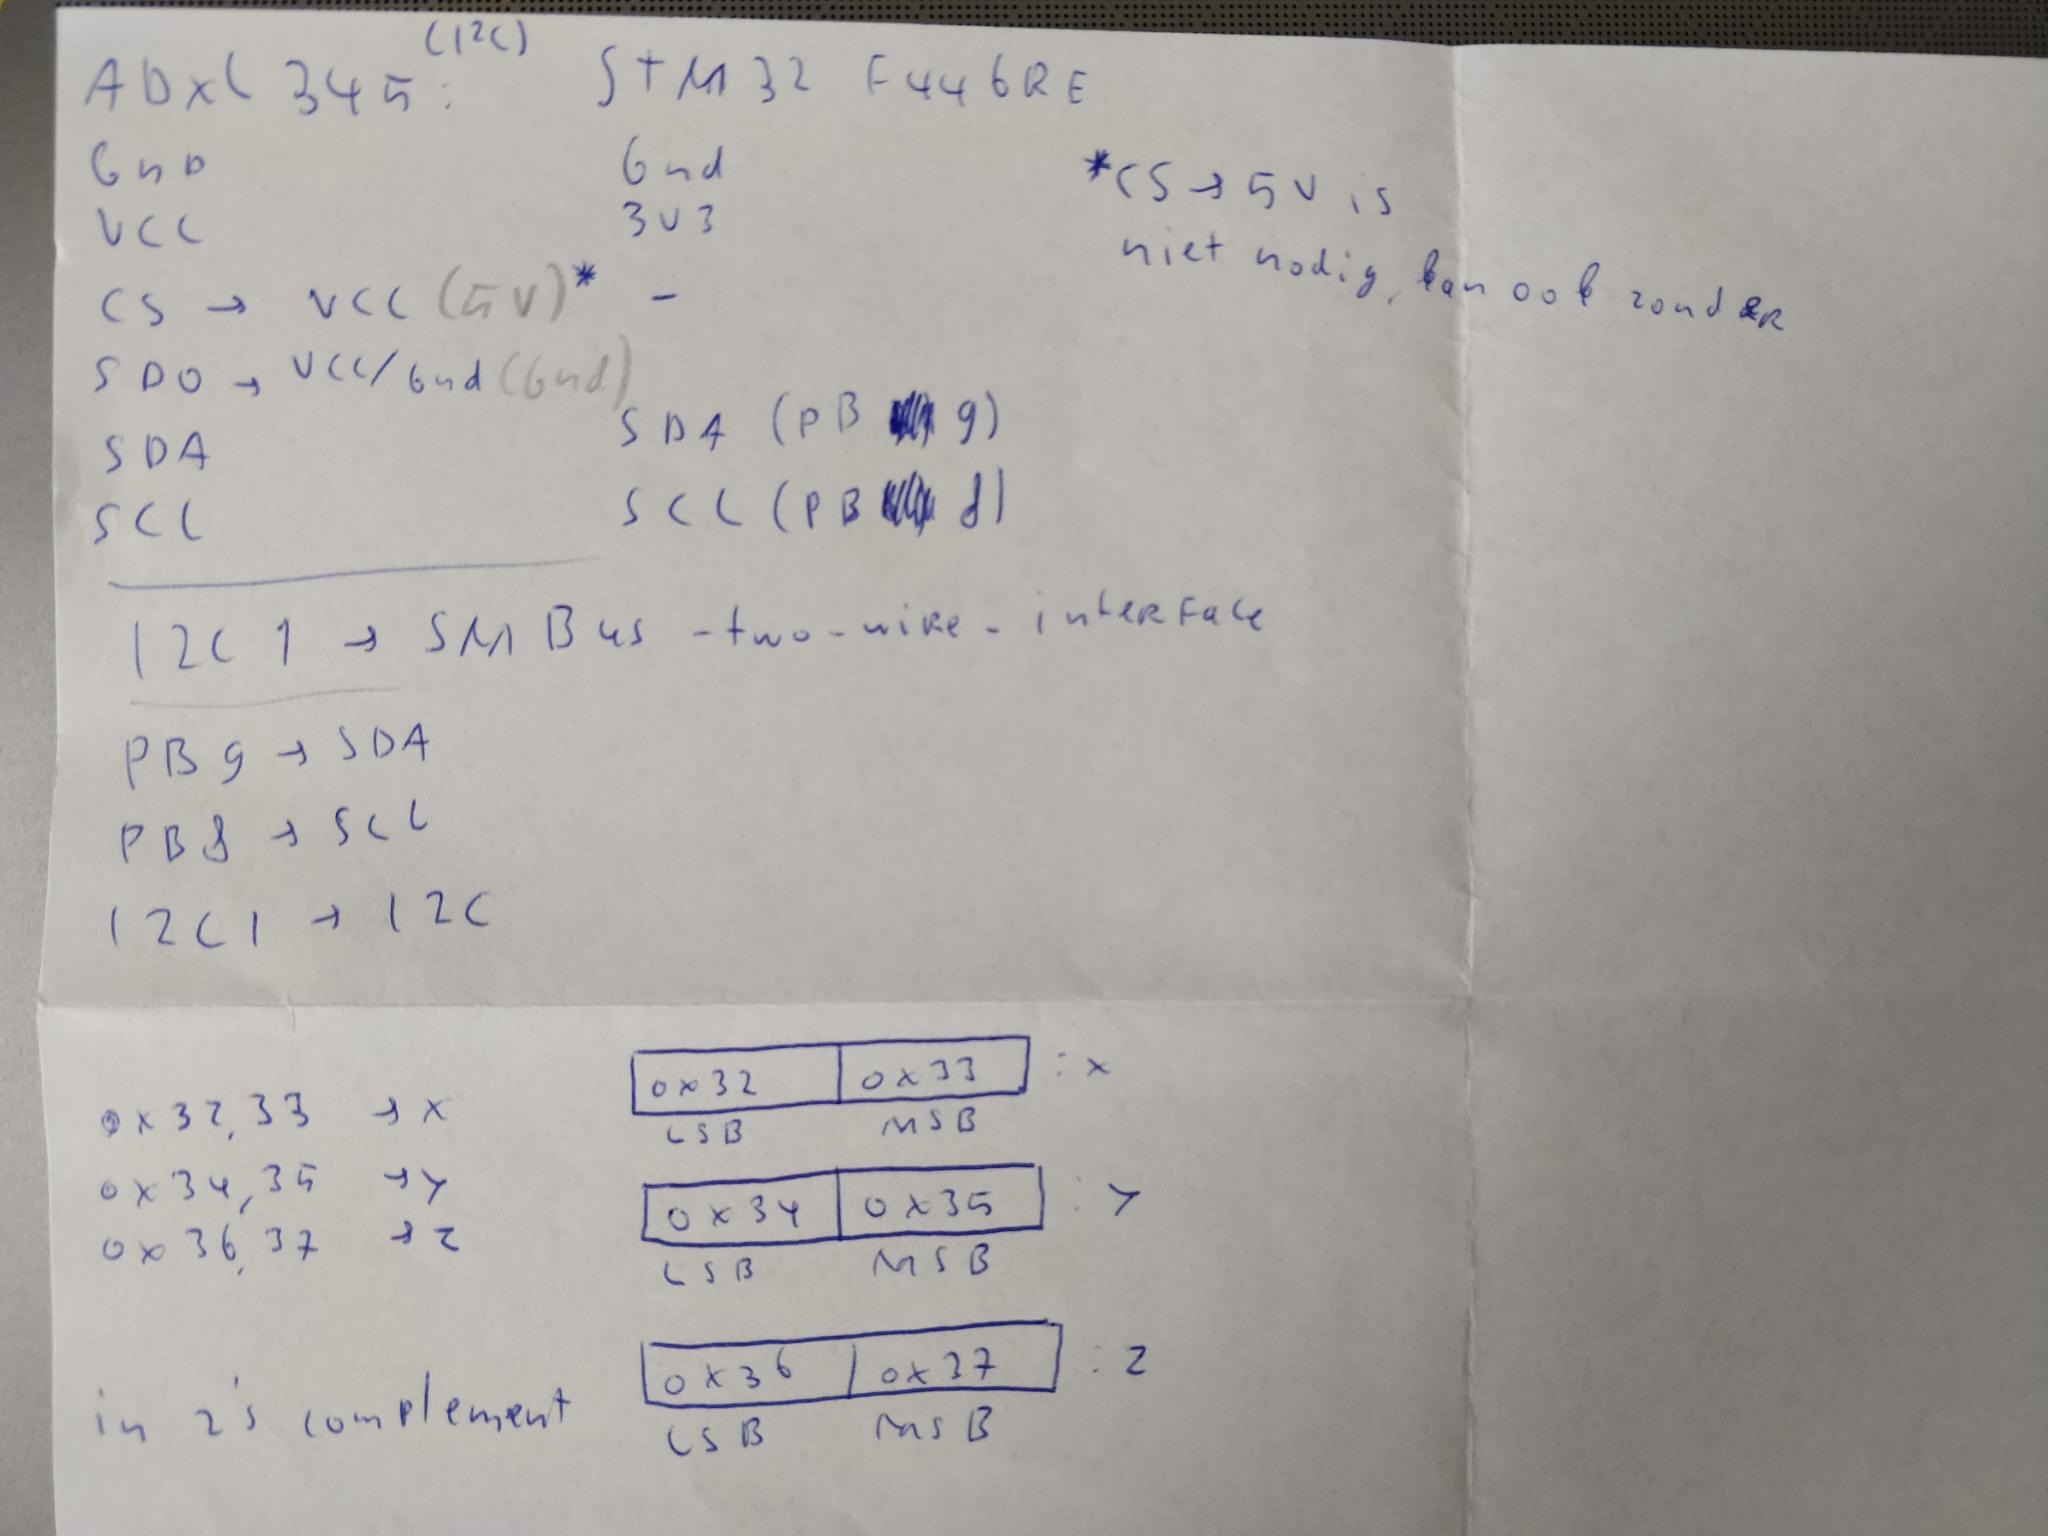 ADXL 345: (I2C) STM32 F446RE
GND Gnd
VCC 3V3
CS → VCC (5V)* -
*CS → 5V is
niet nodig, kan ook zonder
SDO → VCC/Gnd (Gnd)
SDA SDA (PB 9)
SCL SCL (PB 8)
I2C 1 → SMBus-two-wire-interface
PB9 → SDA
PB8 → SCL
I2C1 → I2C
0x32,33 → x
0x34,35 → y
0x36,37 → z
in 2's complement
0x32 0x33 : x
LSB MSB
0x34 0x35 : y
LSB MSB
0x36 0x37 : z
LSB MSB